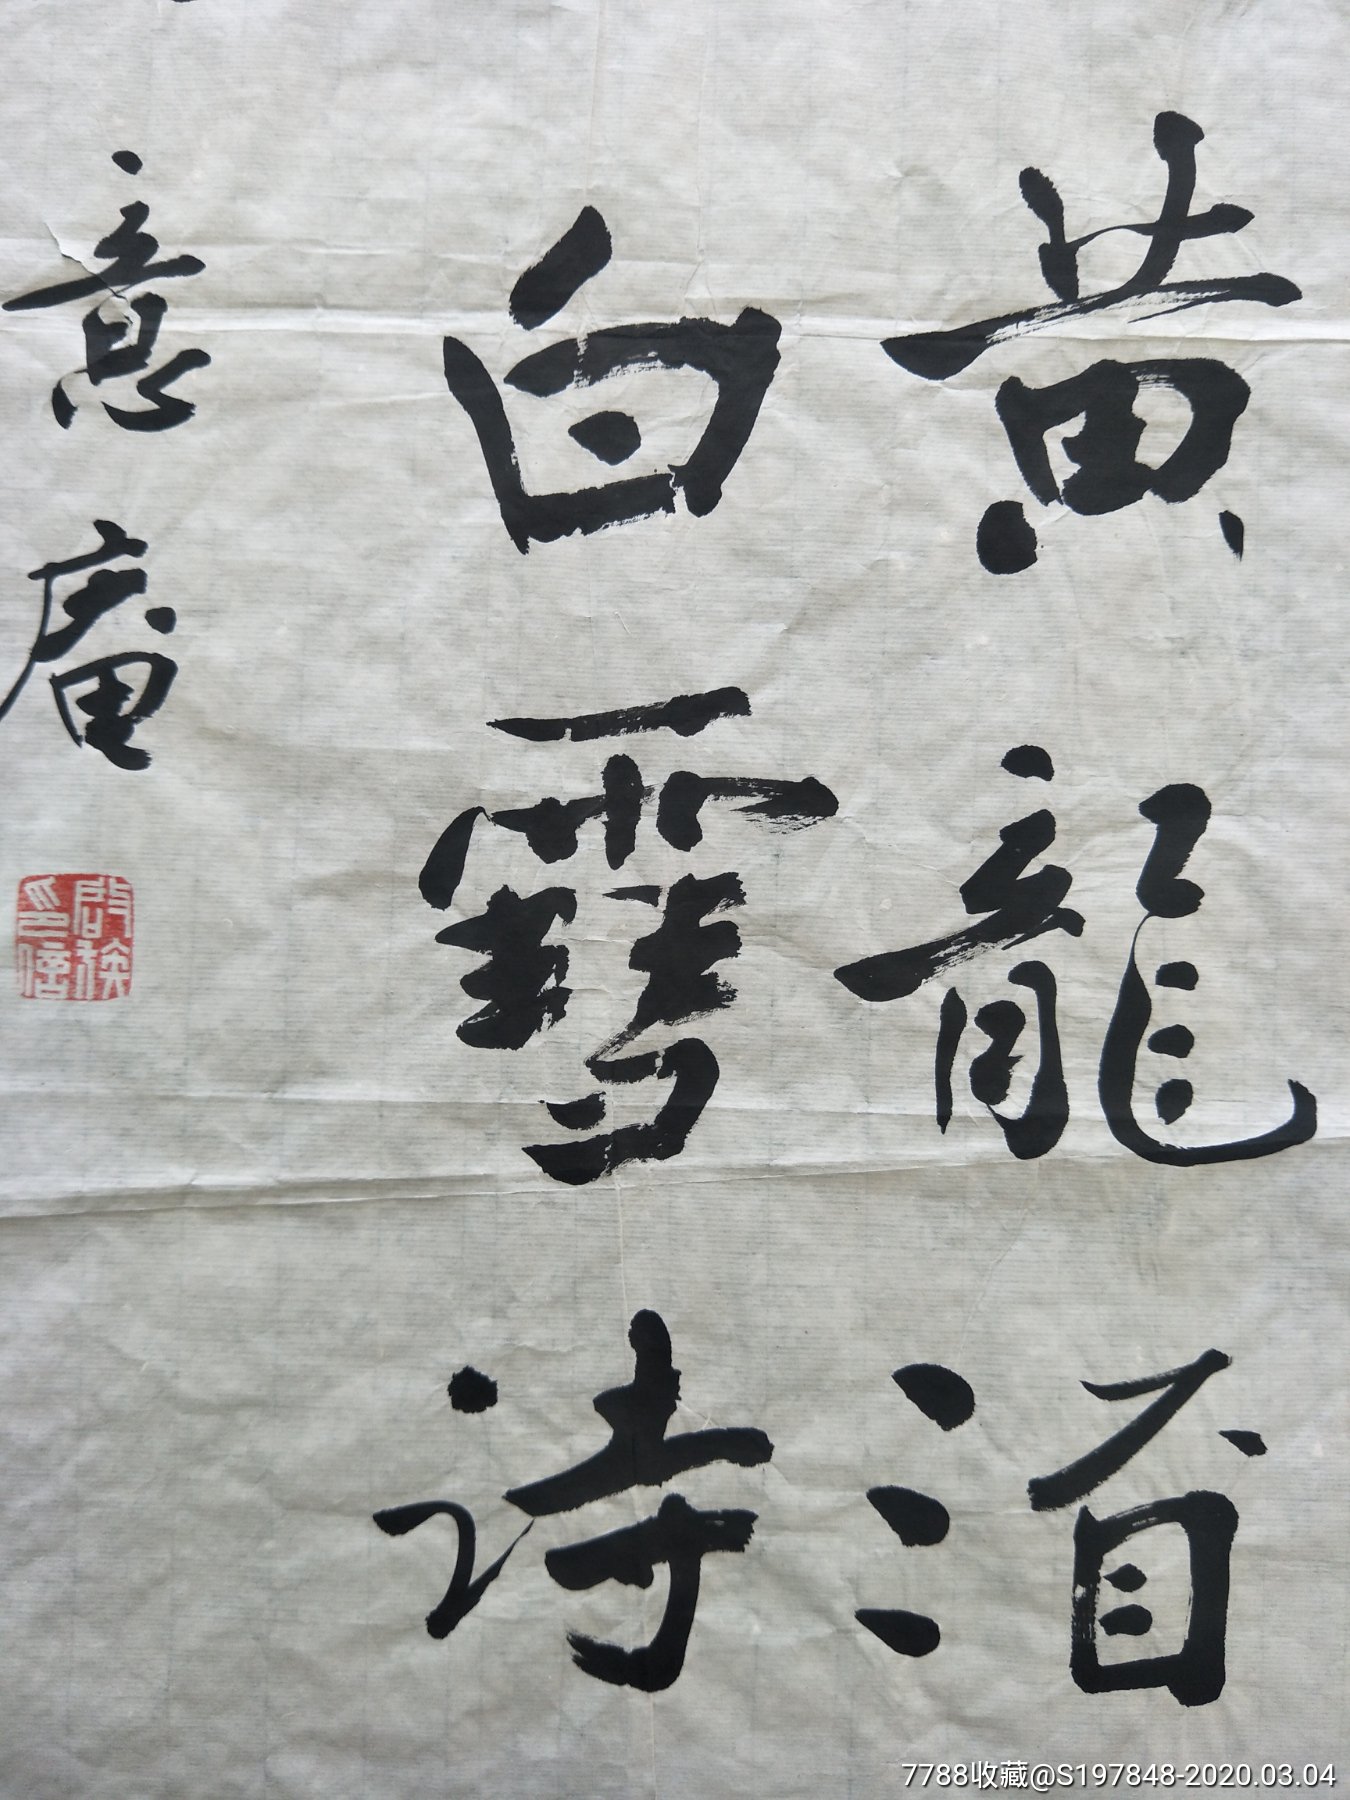 黄龍酒
白雪詩
意庵
印信
7788收藏@S197848-2020.03.04